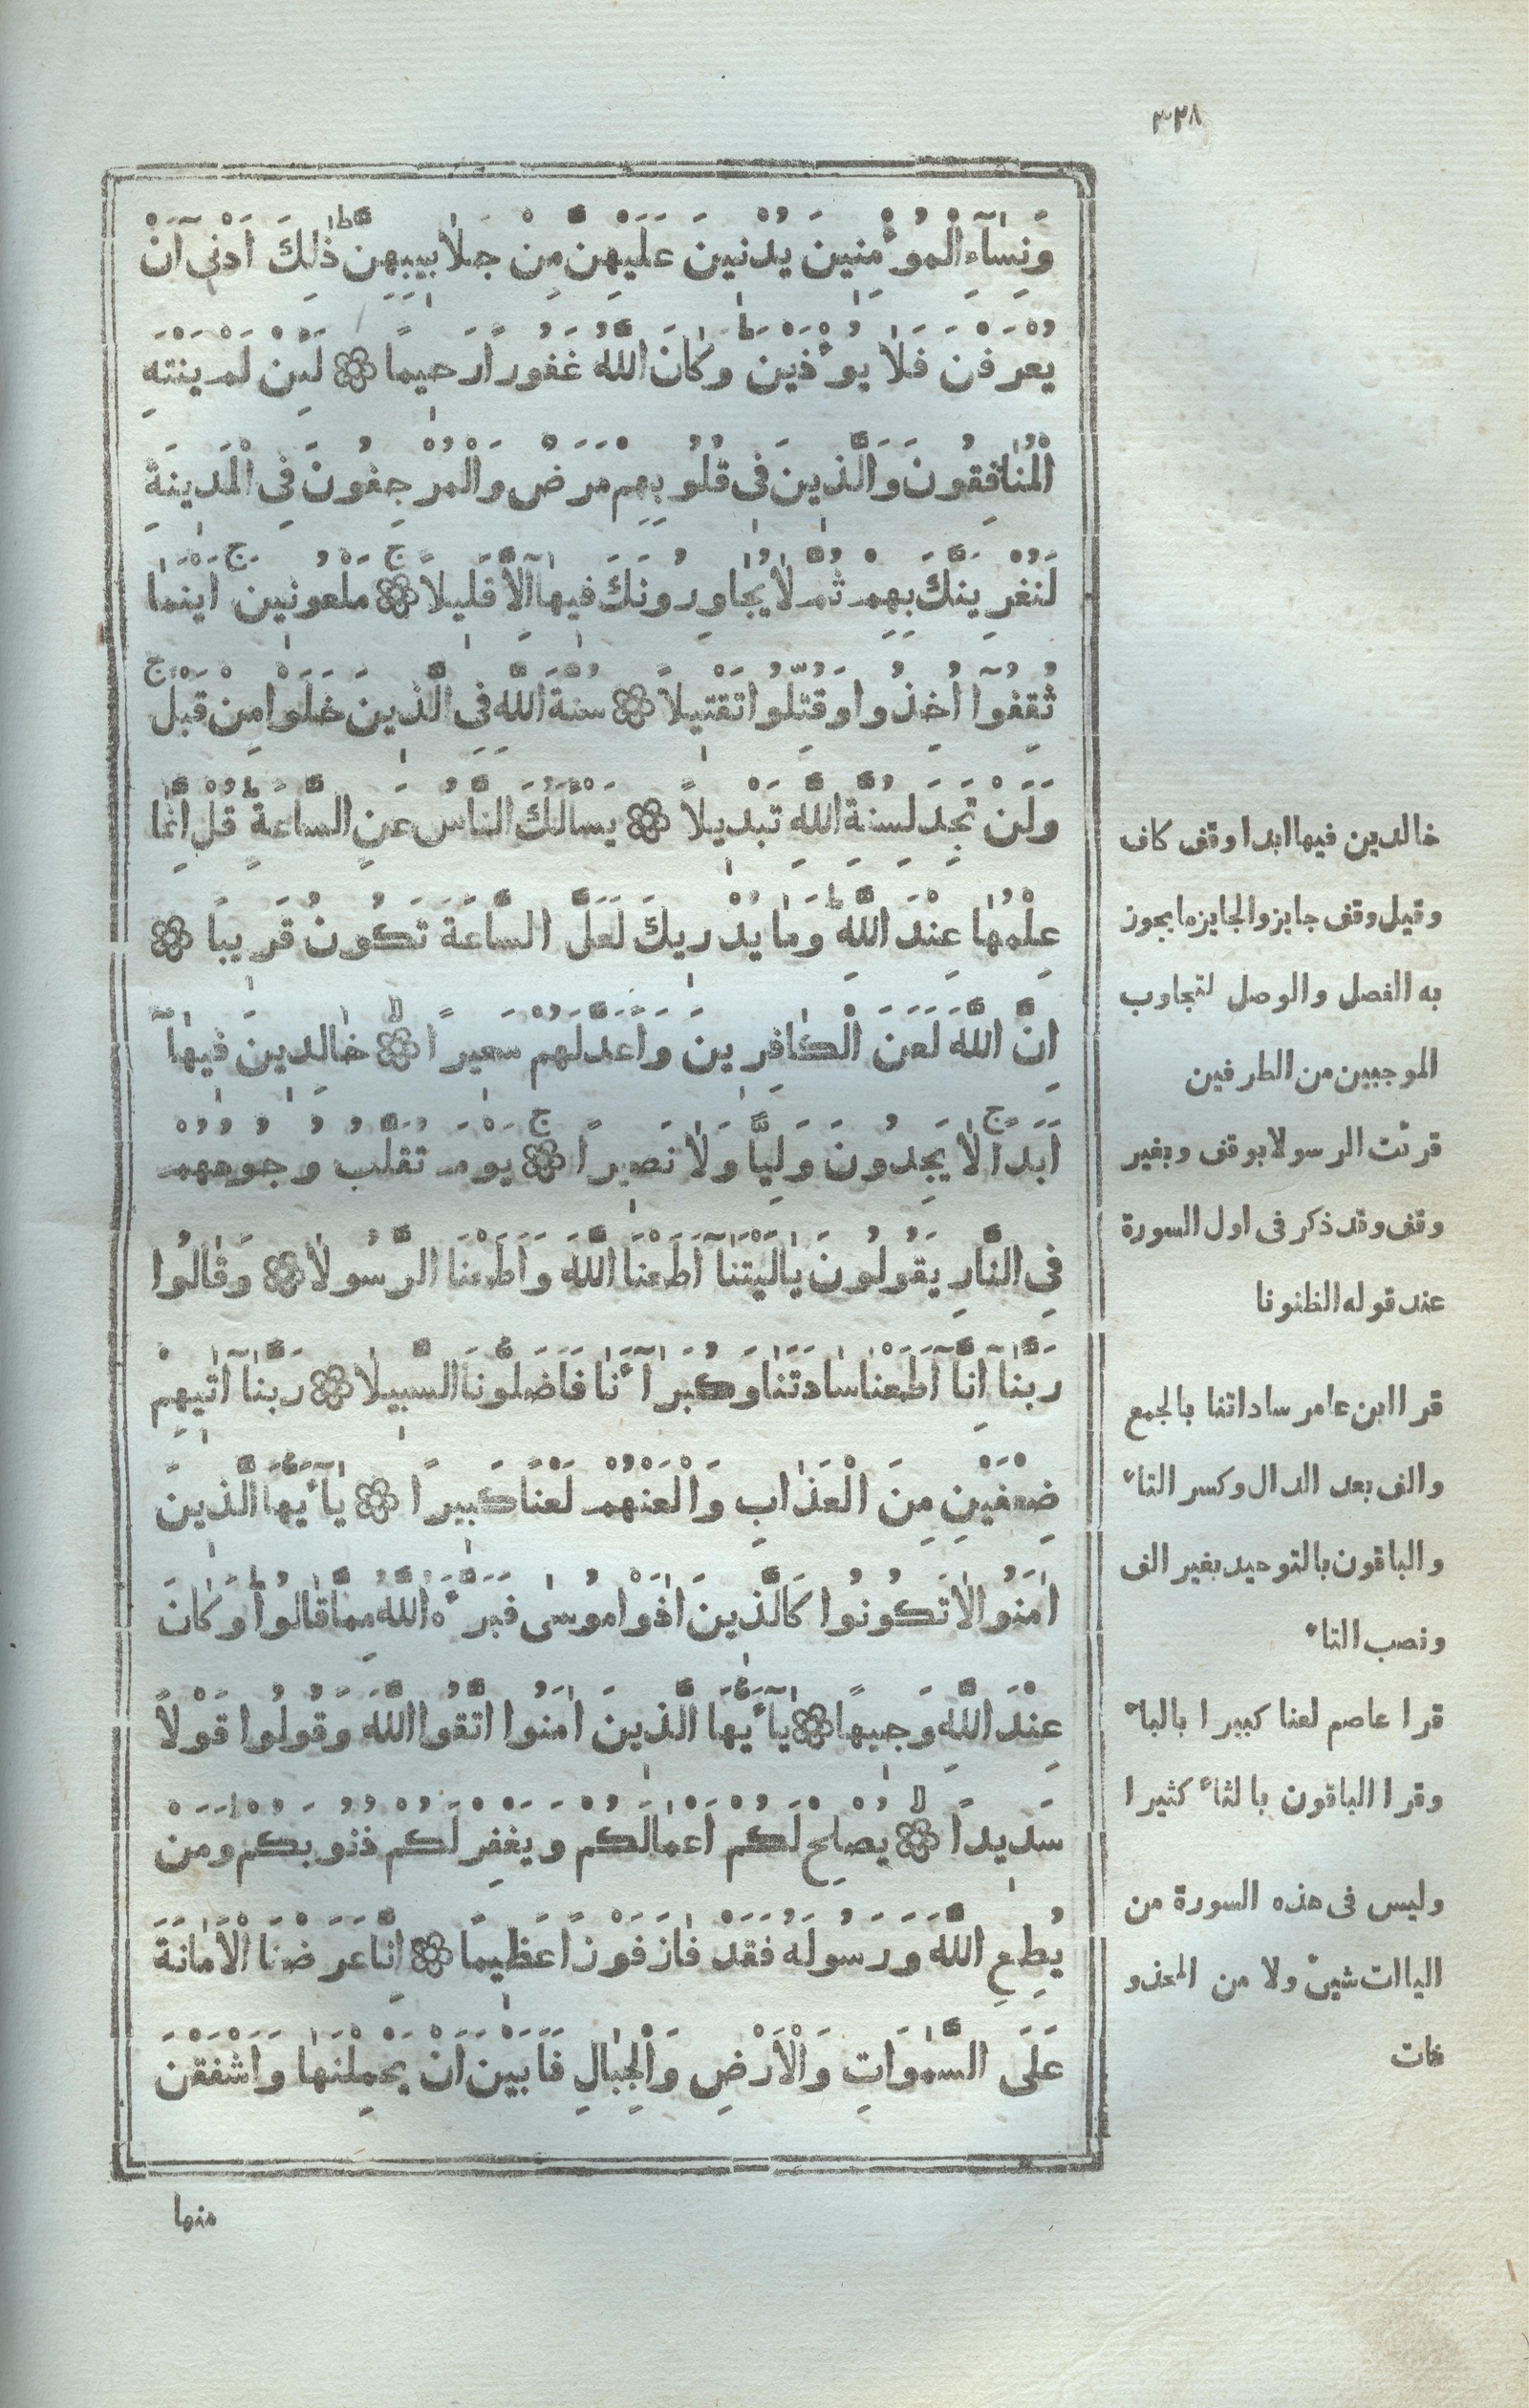 ٣٣٨
وَنِسَآءِ الْمُؤْمِنِينَ يُدْنِينَ عَلَيْهِنَّ مِنْ جَلَابِيبِهِنَّ ط ذٰلِكَ اَدْنٰى اَنْ
يُعْرَفْنَ فَلَا يُؤْذَيْنَ ط وَكَانَ اللّٰهُ غَفُورًا رَحِيمًا ۞ لَئِنْ لَمْ يَنْتَهِ
الْمُنَافِقُونَ وَالَّذِينَ فِى قُلُوبِهِمْ مَرَضٌ وَالْمُرْجِفُونَ فِى الْمَدِينَةِ
لَنُغْرِيَنَّكَ بِهِمْ ثُمَّ لَا يُجَاوِرُونَكَ فِيهَآ اِلَّا قَلِيلًا ج ۞ مَلْعُونِينَ ج اَيْنَمَا
ثُقِفُوٓا اُخِذُوا وَقُتِّلُوا تَقْتِيلًا ۞ سُنَّةَ اللّٰهِ فِى الَّذِينَ خَلَوْا مِنْ قَبْلُ ج
وَلَنْ تَجِدَ لِسُنَّةِ اللّٰهِ تَبْدِيلًا ۞ يَسْاَلُكَ النَّاسُ عَنِ السَّاعَةِ ط قُلْ اِنَّمَا
عِلْمُهَا عِنْدَ اللّٰهِ ط وَمَا يُدْرِيكَ لَعَلَّ السَّاعَةَ تَكُونُ قَرِيبًا ۞
اِنَّ اللّٰهَ لَعَنَ الْكَافِرِينَ وَاَعَدَّ لَهُمْ سَعِيرًا لا ۞ خَالِدِينَ فِيهَآ
اَبَدًا ج لَا يَجِدُونَ وَلِيًّا وَلَا نَصِيرًا ج ۞ يَوْمَ تُقَلَّبُ وُجُوهُهُمْ
فِى النَّارِ يَقُولُونَ يَالَيْتَنَآ اَطَعْنَا اللّٰهَ وَاَطَعْنَا الرَّسُولَا ۞ وَقَالُوا
رَبَّنَآ اِنَّآ اَطَعْنَا سَادَتَنَا وَكُبَرَآءَنَا فَاَضَلُّونَا السَّبِيلَا ۞ رَبَّنَآ اٰتِيهِمْ
ضِعْفَيْنِ مِنَ الْعَذَابِ وَالْعَنْهُمْ لَعْنًا كَبِيرًا ۞ يَآ اَيُّهَا الَّذِينَ
اٰمَنُوا لَا تَكُونُوا كَالَّذِينَ اٰذَوْا مُوسٰى فَبَرَّءَهُ اللّٰهُ مِمَّا قَالُوا ط وَكَانَ
عِنْدَ اللّٰهِ وَجِيهًا ۞ يَآ اَيُّهَا الَّذِينَ اٰمَنُوا اتَّقُوا اللّٰهَ وَقُولُوا قَوْلًا
سَدِيدًا لا ۞ يُصْلِحْ لَكُمْ اَعْمَالَكُمْ وَيَغْفِرْ لَكُمْ ذُنُوبَكُمْ ط وَمَنْ
يُطِعِ اللّٰهَ وَرَسُولَهُ فَقَدْ فَازَ فَوْزًا عَظِيمًا ۞ اِنَّا عَرَضْنَا الْاَمَانَةَ
عَلَى السَّمٰوَاتِ وَالْاَرْضِ وَالْجِبَالِ فَاَبَيْنَ اَنْ يَحْمِلْنَهَا وَاَشْفَقْنَ
منها
خالدين فيها ابدا وقف كاف
وقيل وقف جايز والجايز ما يجوز
به الفصل والوصل لتجاوب
الموجبين من الطرفين
قرئت الرسولا بوقف وبغير
وقف وقد ذكر فى اول السورة
عند قوله الظنونا
قرا ابن عامر ساداتنا بالجمع
والف بعد الدال وكسر التاء
والباقون بالتوحيد بغير الف
ونصب التاء
قرا عاصم لعنا كبيرا بالباء
وقرا الباقون بالثاء كثيرا
وليس فى هذه السورة من
الياات شيئ ولا من المحذو
فات